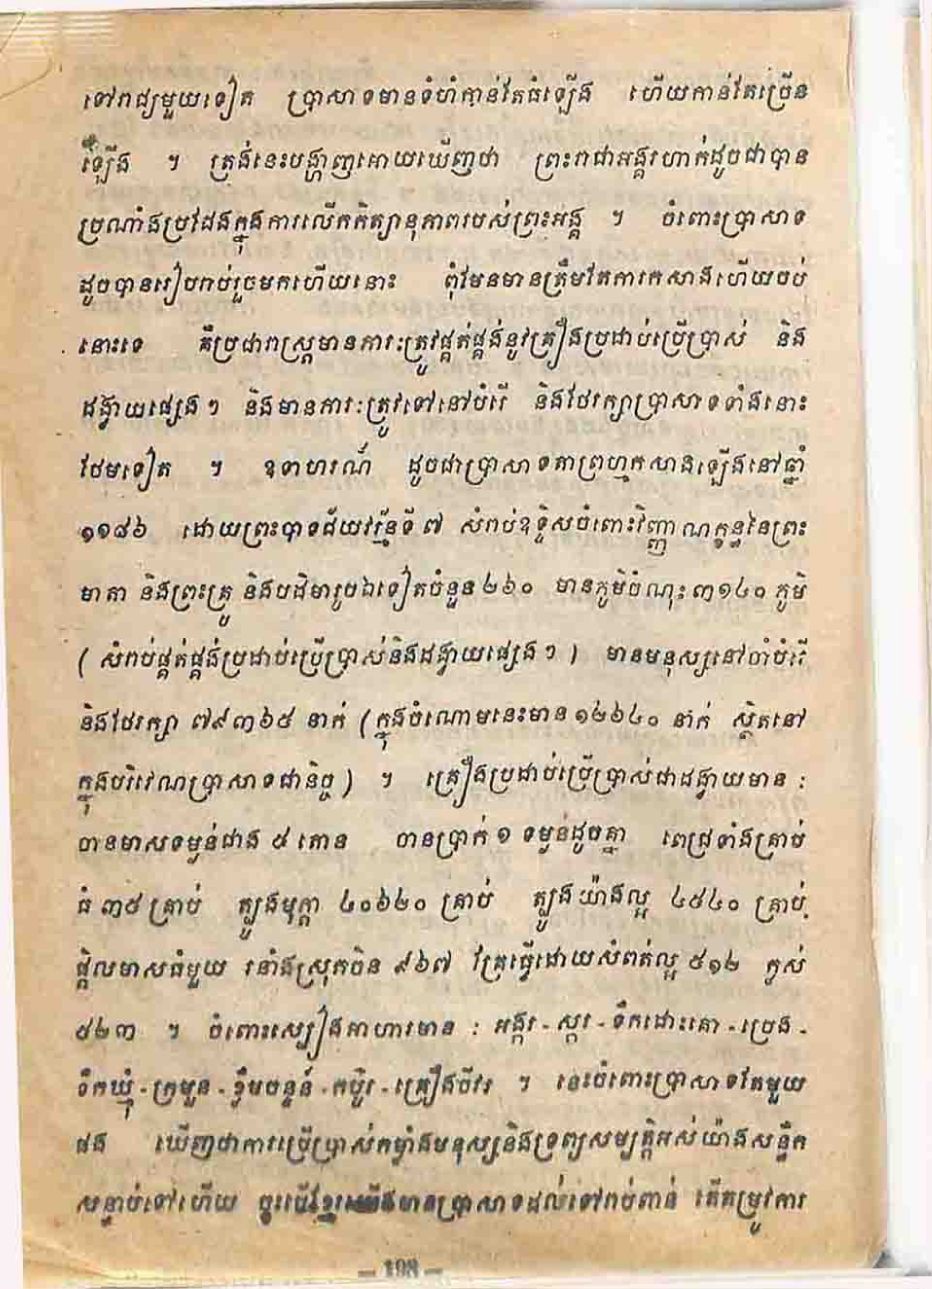 ទៅរាជ្យមួយទៀត ប្រាសាទមានទំហំកាន់តែធំឡើង ហើយកាន់តែច្រើន
ឡើង ។ ត្រង់នេះបង្ហាញអោយឃើញថា ព្រះរាជាអង្គរហាក់ដូចជាបាន
ប្រណាំងប្រជែងក្នុងការលើកកិត្យានុភាពរបស់ព្រះអង្គ ។ ចំពោះប្រាសាទ
ដូចបានរៀបរាប់រួចមកហើយនោះ ពុំមែនមានត្រឹមតែការកសាងហើយចប់
នោះទេ គឺប្រជារាស្ត្រមានការៈត្រូវផ្គត់ផ្គង់នូវគ្រឿងប្រដាប់ប្រើប្រាស់ និង
ដង្វាយផ្សេងៗ និងមានការៈត្រូវទៅនៅបំរើ និងថែរក្សាប្រាសាទទាំងនោះ
ថែមទៀត ។ ឧទាហរណ៍ ដូចជាប្រាសាទតាព្រហ្មកសាងឡើងនៅឆ្នាំ
១១៨៦ ដោយព្រះបាទជ័យវរ្ម័នទី ៧ សំរាប់ឧទ្ទិសចំពោះវិញ្ញាណក្ខន្ធនៃព្រះ
មាតា និងព្រះគ្រូ និងបដិមារូបឯទៀតចំនួន ២៦០ មានភូមិចំណុះ ៣១៤០ ភូមិ
( សំរាប់ផ្គត់ផ្គង់ប្រដាប់ប្រើប្រាស់និងដង្វាយផ្សេងៗ ) មានមនុស្សនៅចាំបំរើ
និងថែរក្សា ៧៩៣៦៥ នាក់ (ក្នុងចំណោមនេះមាន ១២៦៤០ នាក់ ស្ថិតនៅ
ក្នុងបរិវេណប្រាសាទជានិច្ច ) ។ គ្រឿងប្រដាប់ប្រើប្រាស់ជាដង្វាយមាន :
ចានមាសទម្ងន់ជាង ៥ តោន ចានប្រាក់ ១ ទម្ងន់ដូចគ្នា ពេជ្រទាំងគ្រាប់
ធំ ៣៥ គ្រាប់ ត្បូងមុក្តា ៤០៦២០ គ្រាប់ ត្បូងយ៉ាងល្អ ៤៥៤០ គ្រាប់
ផ្តិលមាសធំមួយ រនាំងស្រុកចិន ៩៦៧ វ៉គ្រែធ្វើដោយសំពត់ល្អ ៥១២ ក្លស់
៥២៣ ។ ចំពោះស្បៀងអាហារមាន : អង្ករ - ស្ករ - ទឹកដោះគោ - ប្រេង -
ទឹកឃ្មុំ - ក្រមួន - ខ្លឹមចន្ទន៍ - កប៉ូរ - គ្រឿងចីវរ ។ នេះចំពោះប្រាសាទតែមួយ
ផង ឃើញថាការប្រើប្រាស់កម្លាំងមនុស្សនិងទ្រព្យសម្បត្តិអស់យ៉ាងសន្ធឹក
សន្ធាប់ទៅហើយ ចុះបើខ្មែរយើងមានប្រាសាទដល់ទៅរាប់ពាន់ តើតម្រូវការ
– 198 –